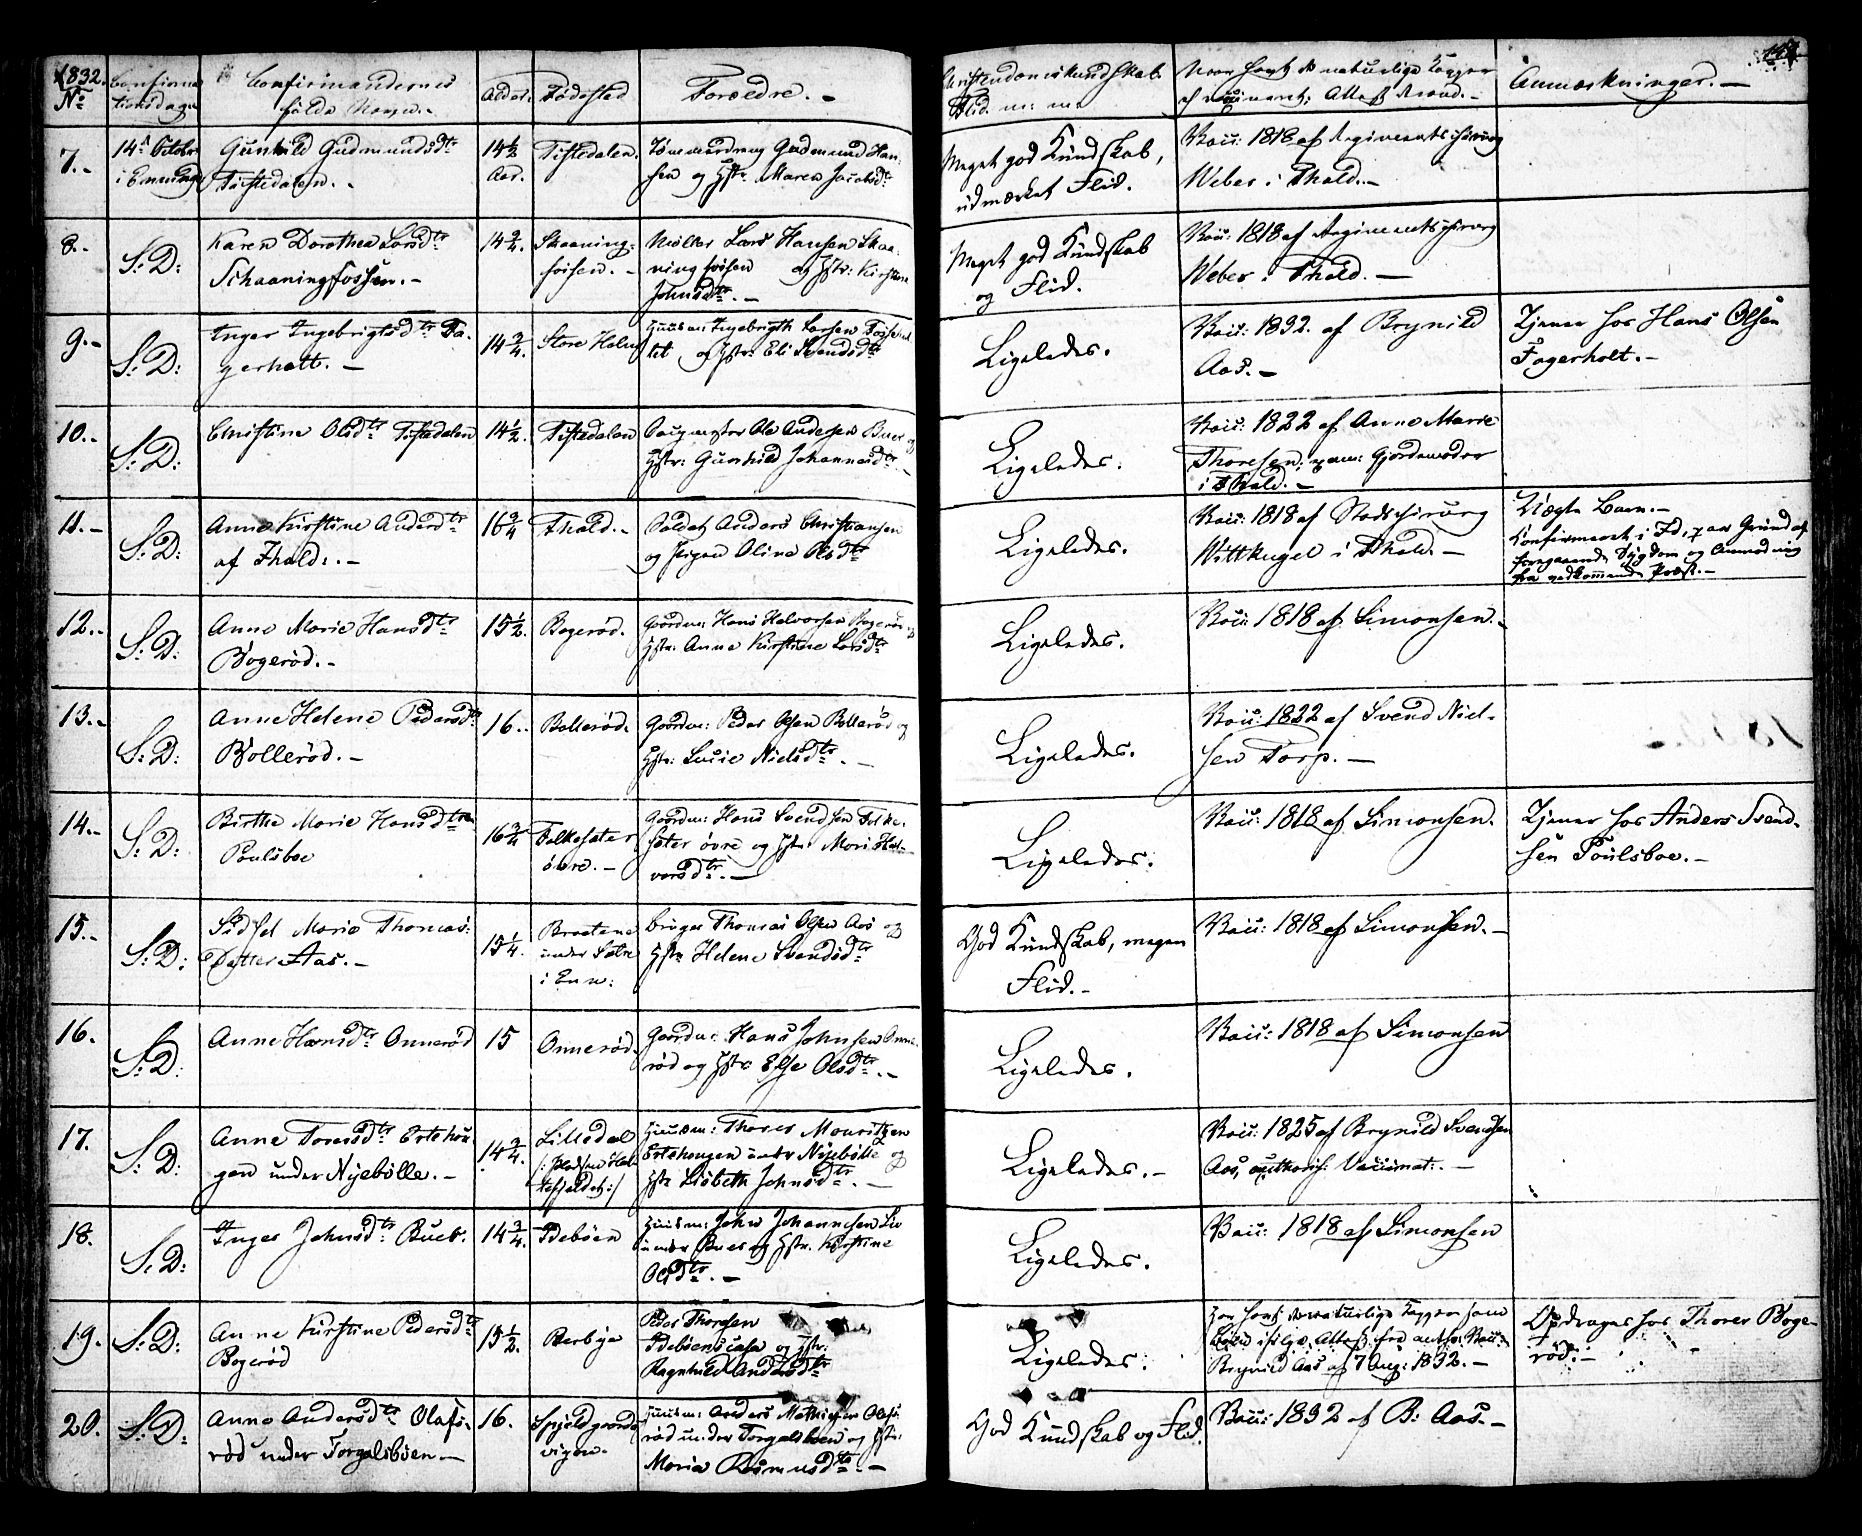 1832.
No
Confirma-
tionsdagen
Confirmandernes
fulde Navn.-
Alder.
Fødested
Forældre.-
Christendomskundskab
Flid. m: m:
Anmærkninger.-
7.-
14de Octobr
i Enningd.
Gunhild Gudmundsdtr
Tistedalen.-
14 1/2
Aar.
Tistedalen.
Gudmund Han-
sen og Hstr: Maren Jacobsdtr
Meget god Kundskab,
udmærket Flid.
Vacc: 1818 af Regimentschirurg
Weber i Fhald.-
8.-
S: D:
Karen Dorothea Larsdtr
Schaaningfossen.-
14 3/4.
Skaaning-
fossen.-
Møller Lars Hansen Skaa-
ningfossen og Hstr: Kirstine
Johnsdtr.-
Meget god Kundskab
og Flid.
Vacc: 1818 af Regimentschirurg
Weber i Fhald.-
9.-
S: D:
Inger Ingebrigtsdtr Fa-
gerholt.-
14 3/4.
Store Holm
Huusm: Ingebrigth Larsen
og Hstr: Eli Svendsdtr
Ligeledes.
Vacc: 1832. af Brynild
Aas.-
Tjener hos Hans Olsen
Fagerholt.-
10.-
S: D:
Christine Olsdtr Tistedalen
14 1/2.
Tistedalen
Saugmester Ole Andersen Buer og
Hstr: Gunhild Johannesdtr.-
Ligeledes.
Vacc: 1822 af Anne Marie
Thoresen, exam: Gjordemoder
i Fhald.-
11.-
S: D:
Anne Kirstine Andersdtr
af Fhald:.-
16 3/4
Fhald.-
Soldat Anders Christiansen
og Pigen Oline Olsdtr
Ligeledes.
Vacc: 1818 af Stadschirurg
Wittkugel i Fhald.-
Uægte Barn.-
Confirmeret i Id, paa Grund af
foregaaende Sygdom og Anmodning
fra vedkommende Præst.-
12.-
S: D:
Anne Marie Hansdtr
Bogerød.-
15 1/2.
Bogerød.
Gaardm: Hans Halvorsen Bogerød og
Hstr: Anne Kirstine Larsdtr
Ligeledes.
Vacc: 1818 af Simonsen.-
13.-
S: D:
Anne Helene Pedersdtr
Bollerød.-
16.-
Bollerød.
Gaardm: Peder Olsen Bollerød og
Hstr: Lucie Nielsdtr.-
Ligeledes.
Vacc: 1822 af Svend Niel-
sen Torp.-
14.-
S: D:
Birthe Marie Hansdtr
Poulsboe
16 3/4
Folkesæter
øvre.-
Gaardm: Hans Svendsen Folke-
sæter øvre og Hstr: Mari Hal-
vorsdtr.-
Ligeledes.
Vacc: 1818 af Simonsen.
Tjener hos Anders Svend-
sen Poulsboe.-
15.-
S: D:
Sidsel Marie Thomas-
Datter Aas.-
15 1/4.
Braatene
under Sæte
i Enn:
Bruger Thomas Olsen Aas og
Hstr: Helene Svendsdtr
God Kundskab, megen
Flid.-
Vacc: 1818 af Simonsen.-
16.
S: D:
Anne Hansdtr Onnerød
15
Onnerød.
Gaardm: Hans Johnsen Onne-
rød og Hstr: Else Olsdtr.-
Ligeledes.
Vacc: 1818 af Simonsen
17.
S: D:
Anne Thoresdtr Ertehou-
gen under Nyebølle.-
14 3/4.
Lilledal
Huusm: Thores Mouritzen
Ertehougen under Nyebølle og
Hstr: Lisbeth Johnsdtr.-
Ligeledes.-
Vacc: 1825 af Brynild Svendsen
Aas, authoris: Vaccinat:.-
18.
S: D:
Inger Johnsdtr Buer.
14 3/4.
Idebøen
Huusm: John Johannesen Lie
under Buer og Hstr: Kirstine
Olsdtr.-
Ligeledes.
Vacc: 1818 af Simonsen
19.
S: D:
Anne Kirstine Pedersdtr
Bogerød
15 1/2.
Berbye
Peder Thoresen
og Hstr:
Ragnhild Andersdtr
Ligeledes.
Har havt de naturlige Kopper
ifølge Attest fra
Brynild Aas af 7 Aug: 1832.-
Opdrages hos Thorer Boge-
rød.-
20.
S: D:
Anne Andersdtr Olafs-
rød under Torgalsbøen.-
16.
Huusm: Anders Mathisen Olafs-
rød under Torgalsbøen og Hstr:
Maria Rasmusdtr.-
God Kundskab og Flid.
Vacc: 1832 af B: Aas.-